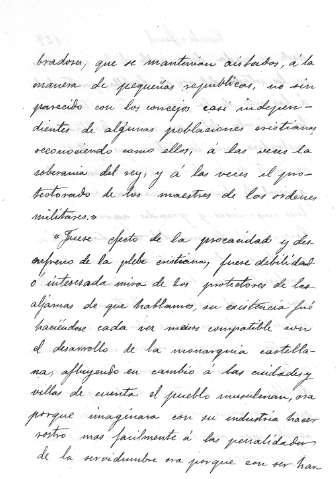 bradores, que se mantenian aislados, á la
manera de pequeñas republicas, no sin
parecido con los concejos casi indepen-
dientes de algunas poblaciones cristianas
reconociendo como ellos, á las veces la
soberania del rey, y á las veces el pro-
tectorado de los maestres de las ordenes
militares.»
"Fuese efecto de la procacidad y des
enfreno de la plebe cristiana, fuese debilidad
o interesada mira de los protectores de las
aljamas de que hablamos, su existencia fué
haciéndose cada vez menos compatible con
el desarrollo de la monarquia castella-
na, afluyendo en cambio á las ciudades y
villas de cuenta el pueblo musulman, ora
porque imaginara con su industria hacer
rostro mas facilmente á las penalidades
de la servidumbre ora porque con ser har